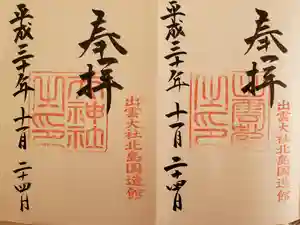 奉拝
出雲大社北島国造館
出雲教
之印
平成三十年 十一月 二十四日
奉拝
出雲大社北島国造館
神社
之印
平成三十年 十一月 二十四日